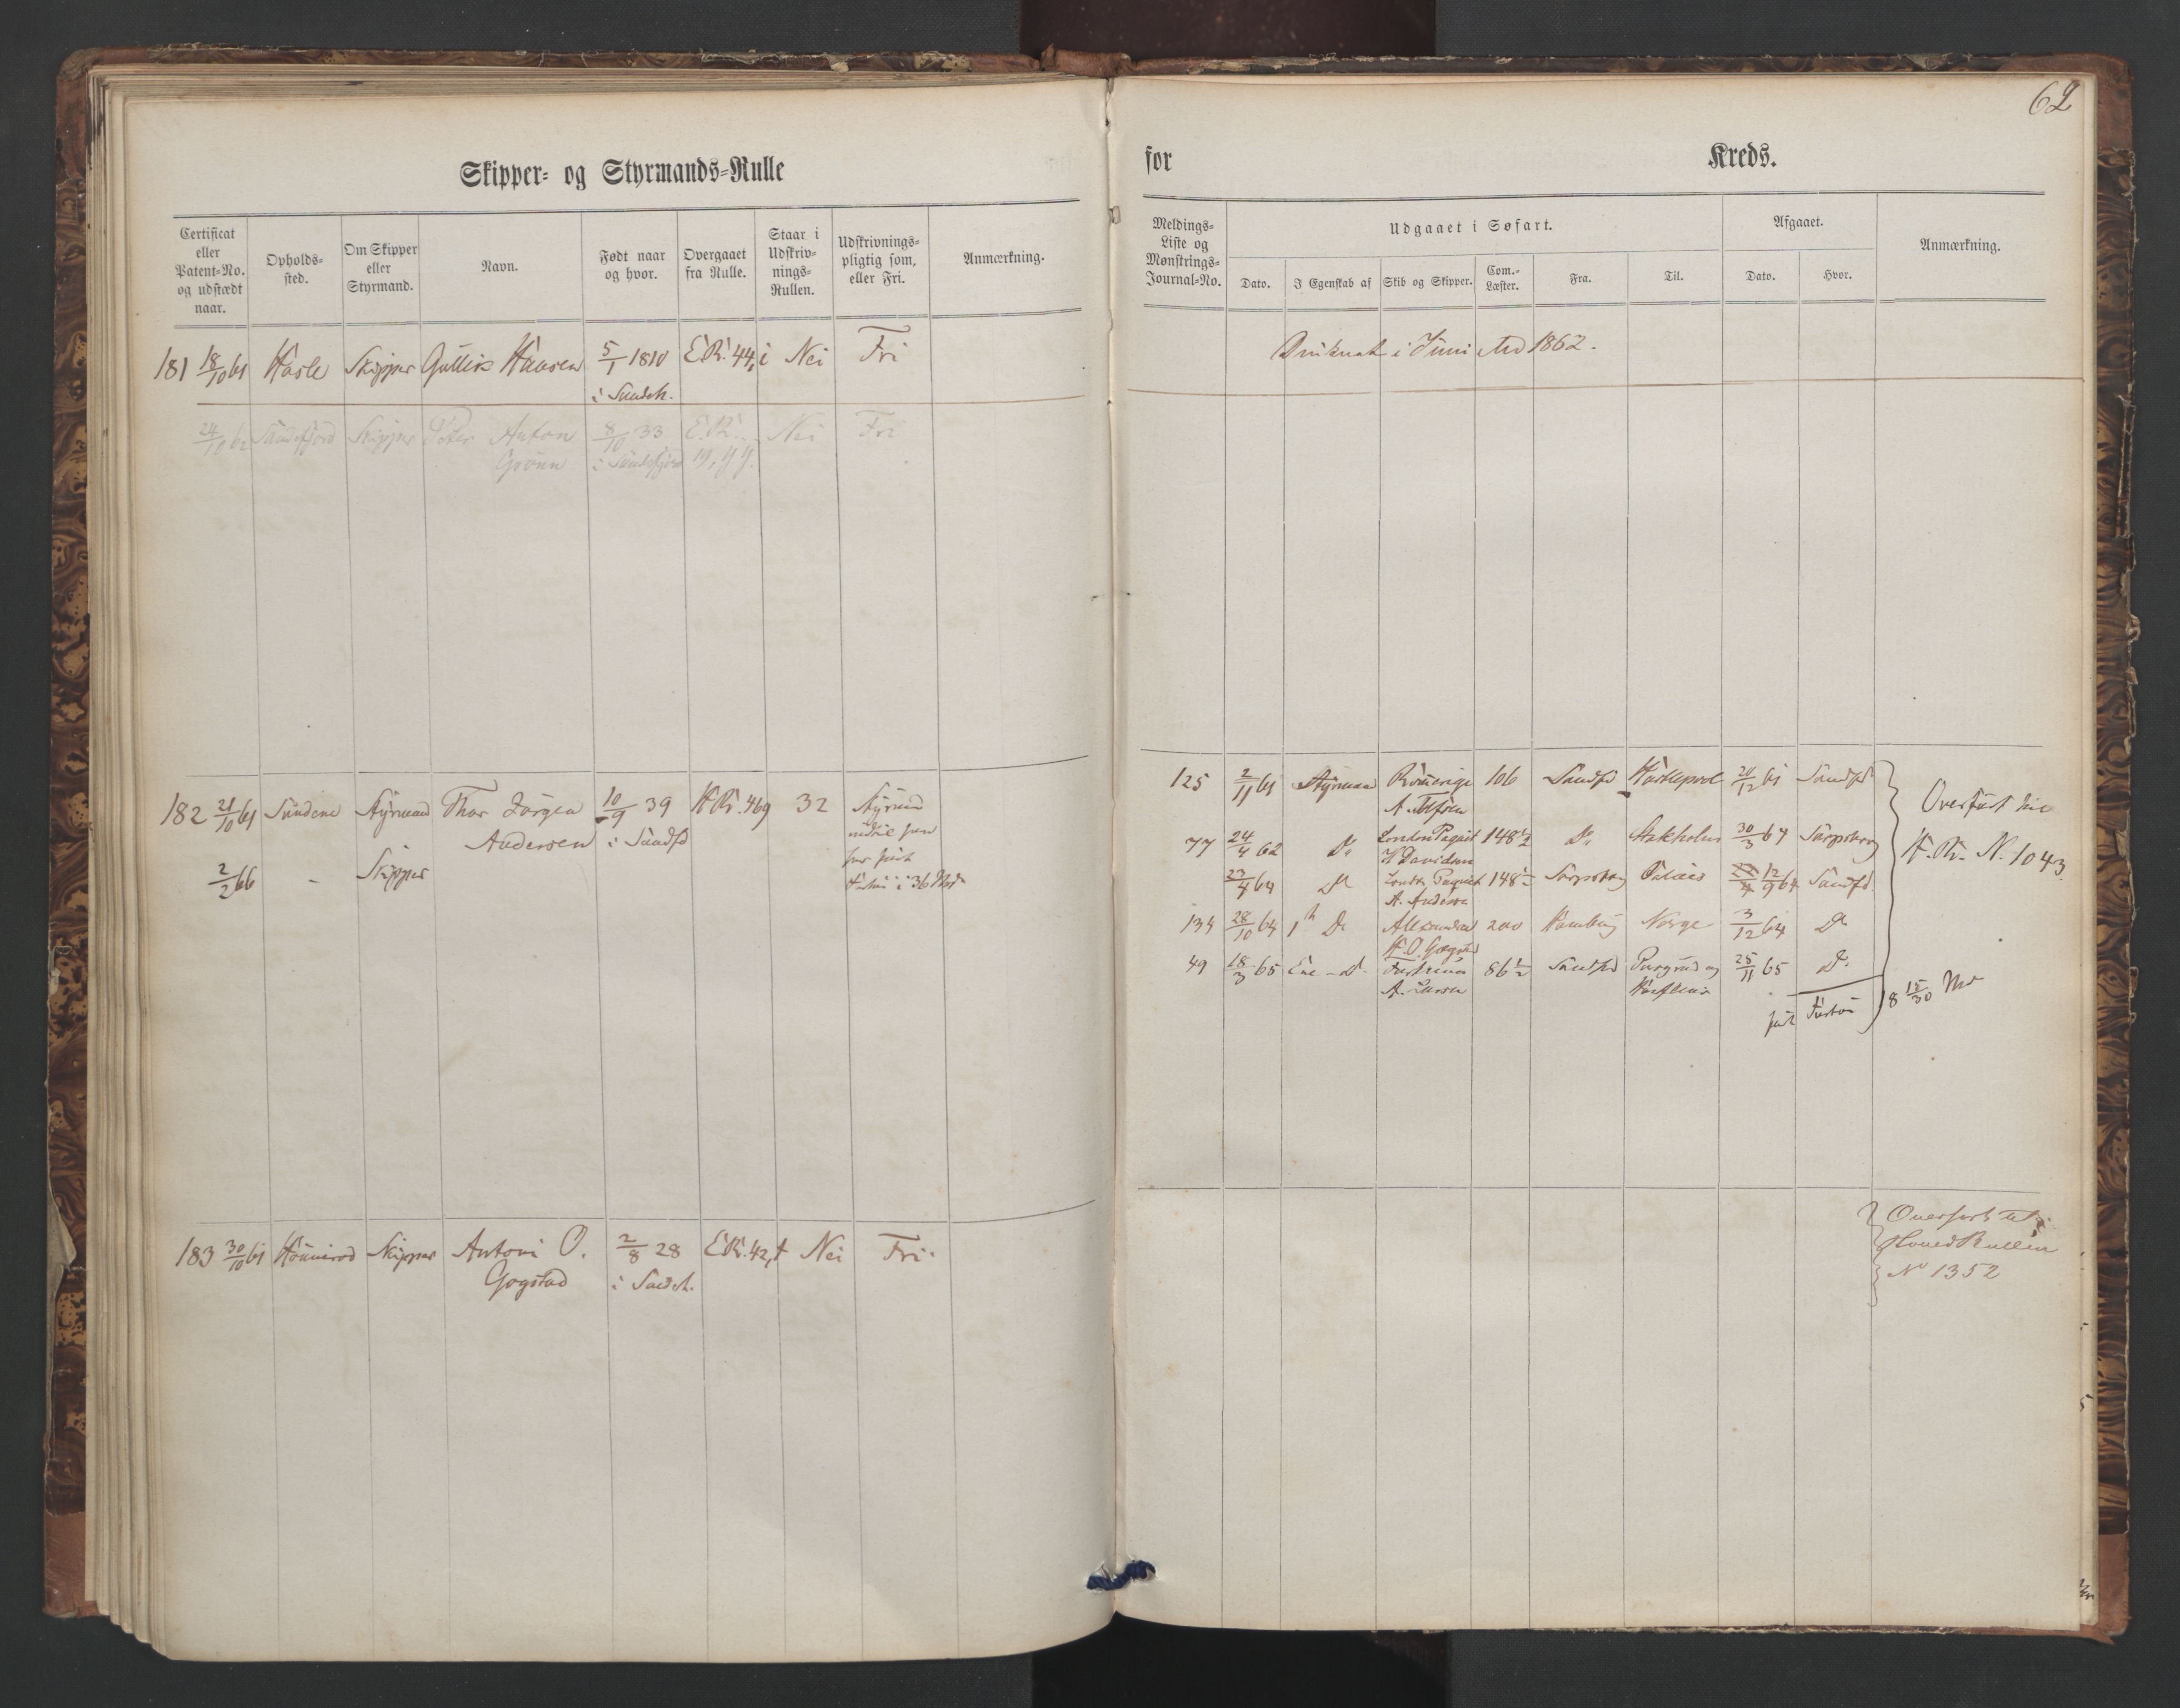 62
Skipper- og Styrmands-Rulle
for Kreds.
Certificat eller Patent-No. og udstædt naar.
Opholds-sted.
Om Skipper eller Styrmand.
Navn.
Født naar og hvor.
Overgaaet fra Rulle.
Staar i Udskriv-nings-Rullen.
Udskrivnings-pligtig som, eller Fri.
Anmærkning.
Meldings-Liste og Mønstrings-Journal-No.
Udgaaet i Søfart.
Dato.
I Egenskab af
Skib og Skipper.
Com.-Læster.
Fra.
Til.
Afgaaet.
Dato.
Hvor.
Anmærkning.
181 18/10 61 Hasle Skipper Gullik Hansen 5/1 1810 E.R. 44, i Nei Fri
i Sandeh.
Druknet i Juni Md 1862.
24/10 62 Sandefjord Skipper Peter Anton 8/10 33 E.R. Nei Fri
Grønn i Sandefjord
182 21/10 61 Sundene Styrmand Thor Jørgen 10/9 39 H.R. 469 32 Styrmd
Andersen i Sandfd
2/2 66 - Skipper
i 36 Mdr
125 2/11 61 Styrmand 106 Sandfd Hartlepool 20/12 61 Sandfd
77 24/4 62 Do London Paquet 148 1/2 Do Stokholm 30/3 64 Sarpsborg
H Davidson
23/4 64 Do London Paquet 148 1/2 Sarpsborg Calais 12/9 64 Sandfd
A. Andersen
134 28/10 64 1ste Do Alexandra 200 Hamburg Norge 3/12 64 Do
H. O. Gogstad
49 18/3 65 Ene-Do 86 1/2 Sandfd Porsgrund og 25/11 65 Do
A. Larsen
Overført til
H.R. N. 1043
18 15/30 Md
183 30/10 61 Skipper Antoni O. 2/8 28 E.R. 42, t Nei Fri
Gogstad i Sandeh.
Overført til
HovedRullen
No 1352